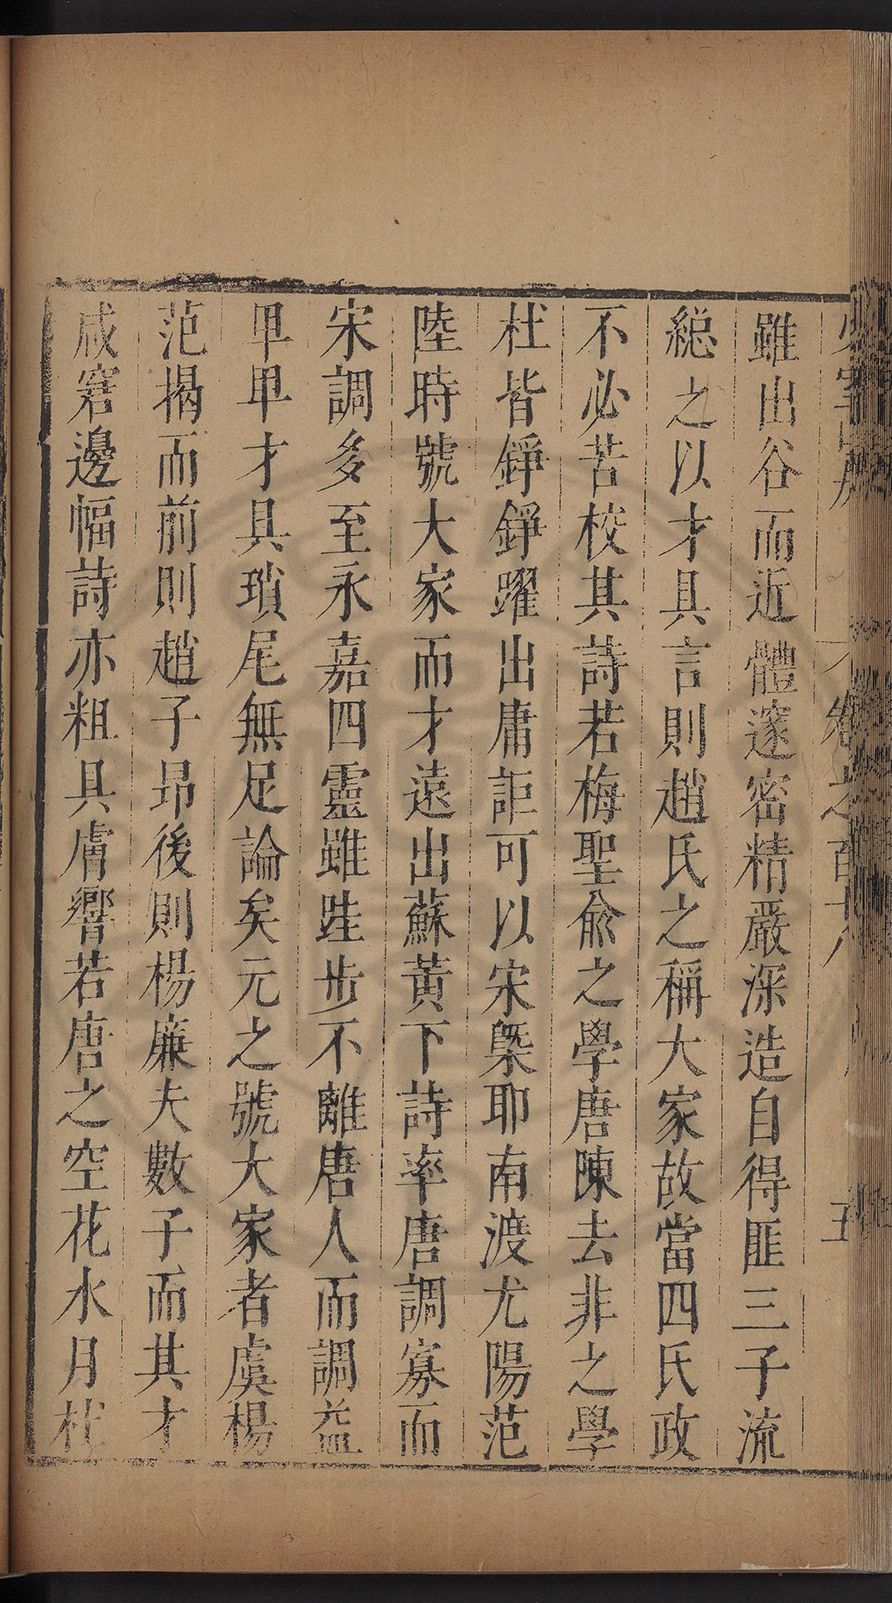 少室山房 卷之百十八 五
雖出谷而近體邃密精嚴深造自得匪三子流
緫之以才具言則趙氏之稱大家故當四氏政
不必苦校其詩若梅聖兪之學唐陳去非之學
杜皆錚錚躍出庸詎可以宋槩耶南渡尤陽范
陸時號大家而才遠出蘇黃下詩率唐調寡而
宋調多至永嘉四靈雖跬步不離唐人而調益
卑卑才具瑣尾無足論矣元之號大家者虞楊
范揭而前則趙子昂後則楊廉夫數子而其才
咸窘邊幅詩亦粗具膚響若唐之空花水月杜